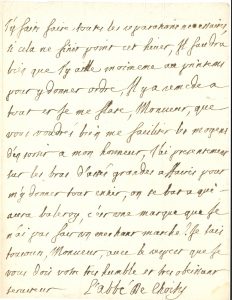 J'y fais faire toutes les reparations necessaires,
si cela ne finit point cet hiver, Il faudra
bien que J'y aille moimeme au printems
pour y donner ordre, Il y a remede a
tout et Je me flate, Monsieur, que
vous voudrez bien me faciliter les moyens
d'en sortir a mon honneur, J'ai presentement
sur les bras d'assez grandes affaires pour
m'y donner tout entier, on se bat a qui
aura baleroy, c'est une marque que Je
n'ai pas fait un mechant marché. Je suis
tousiours, Monsieur, avec le respect que Je
vous dois votre tres humble et tres obeissant
serviteur
L'abbé De Choisy